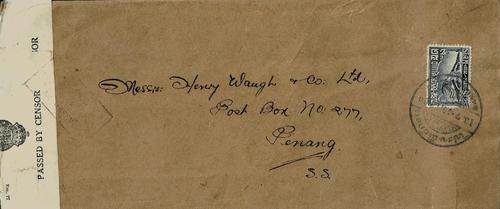 PASSED BY CENSOR
Messrs: Henry Waugh & Co. Ltd,
Post Box No. 277,
Penang.
S.S.